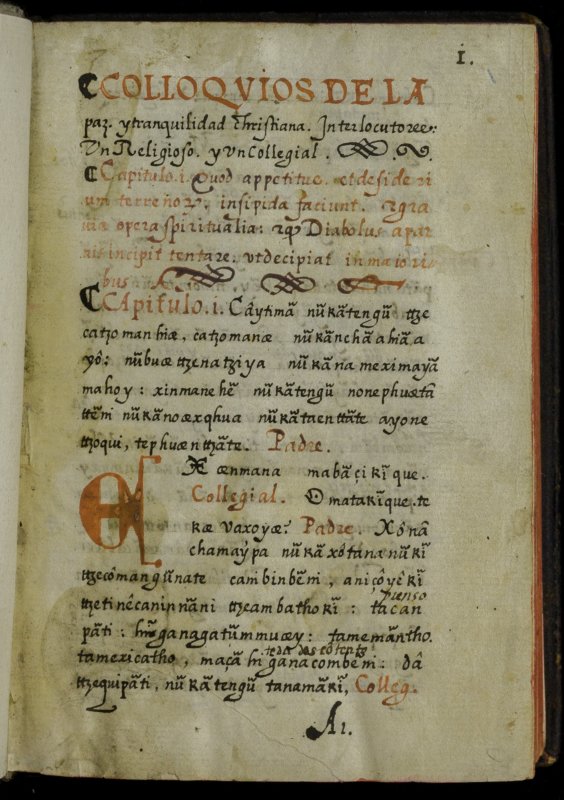 1.
COLLOQVIOS DE LA
paz. y tranquilidad christiana. Interlocutores:
Vn Religioso. y vn Collegial.
Capitulo. i. Quod appetitus. et desideri
insipida faciunt.
opera spiritualia: Diabolus apar
incipit tentare: vt decipiat in maiori
bus
Capitulo. i. nũ kã tengũ
catzo man hiæ, catzomanæ
yô: nũbuæ ttzenatziya nũ kã na meximayã
mahoy: xinmanehẽ nũ kã tengũ nonephuætã
ttẽmi nũ kã noæxqhua nũ kã taenttãte ayone
ttzoqui, tephuæn ttzãte. Padre.
ænmana mabãçi kĩ que.
Collegial. O matakĩque. te
kæ vaxoyæ? Padre. Xô nã
chamaypa nũ kã xôtãna nũ kĩ
cambinbẽmi, aniçôyêkĩ
pienso
ttzetinêcaninnãni ttzeambathokĩ: tacan
pãti: ganagatũmmuæy: tamemãntho.
tamexicatho, maçã ganacombẽmi: dã
ttzequipãti, nũ kã tengũ tanamãkĩ, Colleg.
A1.